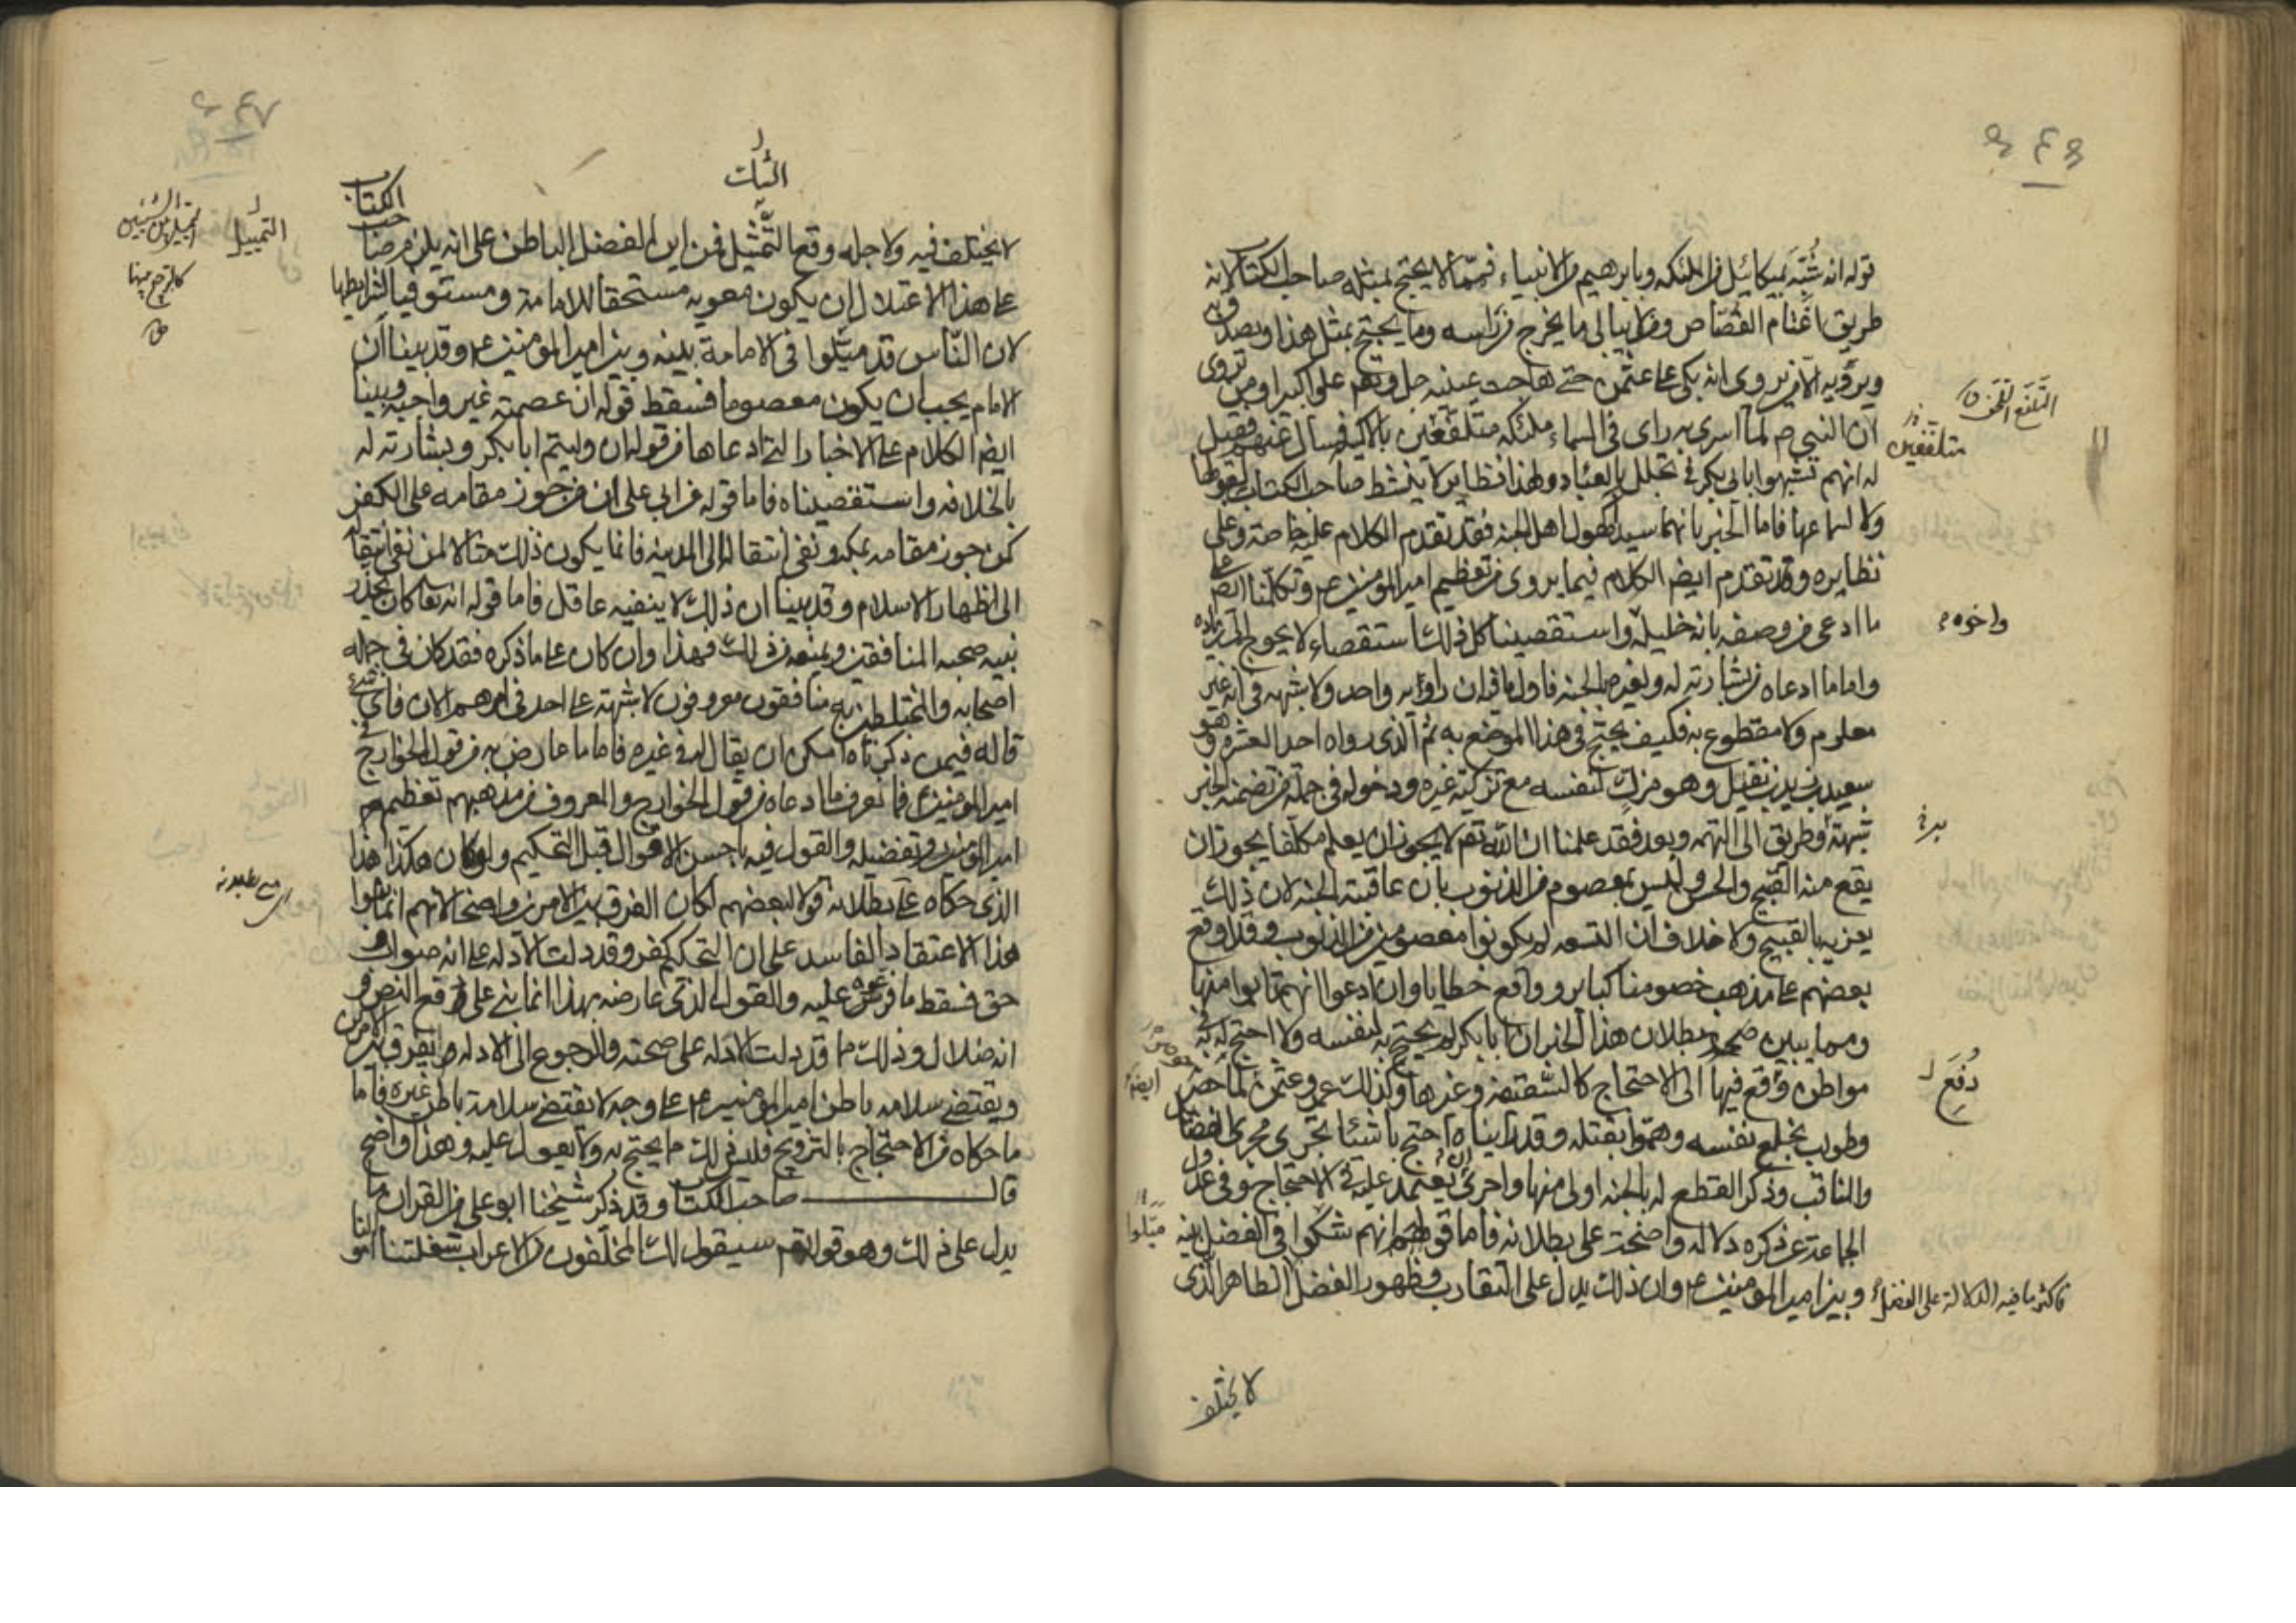 قوله انه شُبّه بميكائيل من الملئكه وبابرهيم من الانبياء فمما لا يحتج بمثله صاحب الكتاب لانه
طريق اغتام القصّاص ومن لا يبالى ما يخرج من راسه وما يحتج بمثل هذا ويصدق به
ويرويه الا من يروى انه بكى على عثمن حتى هاجت عينه جل وتعم على اكبر ومن يروى
ان النبي ص لما اسرى به راى فى السماء ملئكه متلفعين بالاكسيه فسال عنهم فقيل
له انهم تشبهوا بابى بكر فى تخلل بالعباد ولهذا نظاير لا ينشط صاحب الكتاب لقبولها
ولا لسماعها فاما الخبر بانهما سيدا كهول اهل الجنه فقد تقدم الكلام عليه خاصة وعلى
نظايره وقد تقدم ايضم الكلام فيما يروى من تعظيم امير المومنين عم وتكلمنا ايضم على
ما ادعى من وصفه بانه خليله واستقصينا كل ذلك استقصاء لا يحوج الى زياده
واما ما ادعاه من بشارته له ولغيره بالجنه فاول ما فيه ان راويه واحد ولا شبهه فى انه غير
معلوم ولا مقطوع به فكيف يحتج فى هذا الموضع به ثم الذى رواه احد العشره وهو
سعيد بن زيد بن نفيل وهو مزكٍّ لنفسه مع تزكية غيره ودخوله فى جملة من تضمنه الخبر
شبهة وطريق الى التهمه وبعد فقد علمنا ان الله تعم لا يجوز ان يعلم مكلفا يجوز ان
يقع منه القبيح والحسن وليس بمعصوم من الذنوب بان عاقبته الجنه لان ذلك
يغريه بالقبيح ولا خلاف ان التسعه لم يكونوا معصومين من الذنوب وقد اوقع
بعضهم على مذهب خصومنا كباير وواقع خطايا وان ادعوا انهم تابوا منها
ومما يبين بطلان هذا الخبر ان ابا بكر لم يحتج به لنفسه ولا احتج له به فى
مواطن وقع فيها الى الاحتجاج كالسقيفه وغيرها وكذلك عمر وعثمن لما حصر
وطولب بخلع نفسه وهموا بقتله وقد راينا ه احتج باشيئا تجرى مجرى الفضائل
والمناقب وذكر القطع له بالجنه اولى منها واحرى ان يعتمد عليه فى الاحتجاج وفى عدول
الجماعة عن ذكره دلاله واضحة على بطلانه فاما قوله انهم شكوا فى الفضل بينه
وبين امير المومنين ع وان ذلك يدل على التقارب وظهور الفضل الظاهر الذى
التلفّع التقنّع
متلففين
واخوه
دُفِعَ
ايضم
ميّلوا
فاكثر ما فيه الدلالة على الفضل
لا يختلف
البيات
الكتاب
لا يختلف فيه ولاجله وقع التمثيل فمن اين الفضل الباطن على انه يلزم صاحب
على هذا الاعتلال ان يكون معويه مستحقا للامامة ومستوفيا لشرايطها
لان الناس قد ميّلوا فى الامامة بينه وبين امير المومنين ع وقد بينا ان
الامام يجب ان يكون معصوما فسقط قوله ان عصمته غير واجبه وبينا
ايضم الكلام على الاخبار التى ادعاها من قوله ان وليتم ابا بكر وبشارته له
بالخلافه واستقصيناه فاما قوله عن ابى على ان من جوز مقامه على الكفر
كمن جوز مقامه بمكه ونفى انتقاله الى المدينه فانما يكون ذلك مثالا لمن نفى انتقاله
الى اظهار الاسلام وقد بينا ان ذلك لا ينفيه عاقل فاما قوله انه تعا كان يحذر
نبيه صحبه المنافقين ويمنعه من ذلك فهذا وان كان على ما ذكره فقد كان فى جمله
اصحابه والمختلطين به منافقون معروفون لا شبهة على احد فى امرهم الان فاى شىء
قاله فيمن ذكرناه امكن ان يقال له فى غيره فاما ما عارض به من قول الخوارج فى
امير المومنين ع فما نعرف ما ادعاه من قول الخوارج والمعروف من مذهبهم تعظيمهم
امير المومنين وتفضيله والقول فيه باحسن الاقوال قبل التحكيم ولو كان هكذا هذا
الذى حكاه على بطلانه قولا لبعضهم لكان الفرق بين الامرين واضحا لانهم انما بنوا
هذا الاعتقاد الفاسد على ان التحكيم كفر وقد دلت الادله على انه صواب و
حق فسقط ما فرعوه عليه والقول الذى عارضه بهذا انما بنى على دفع النص و
انه ضلال وذلك مما قد دلت الادله على صحته والرجوع الى الادله يفرق بين الامرين
ويقتضى سلامه باطن امير المومنين ع على وجه لا يقتضى سلامة باطن غيره فاما
ما حكاه من الاحتجاج بالتزويج فليس ذلك مما يحتج به ولا يعول عليه وهذا واضح
قال صاحب الكتاب وقد ذكر شيخنا ابو على من القران ما
يدل على ذلك وهو قوله تعم سيقول لك المخلفون من الاعراب شغلتنا اموالنا
التمييل
التمييل بين الشيئين
كالترجيح بينهما